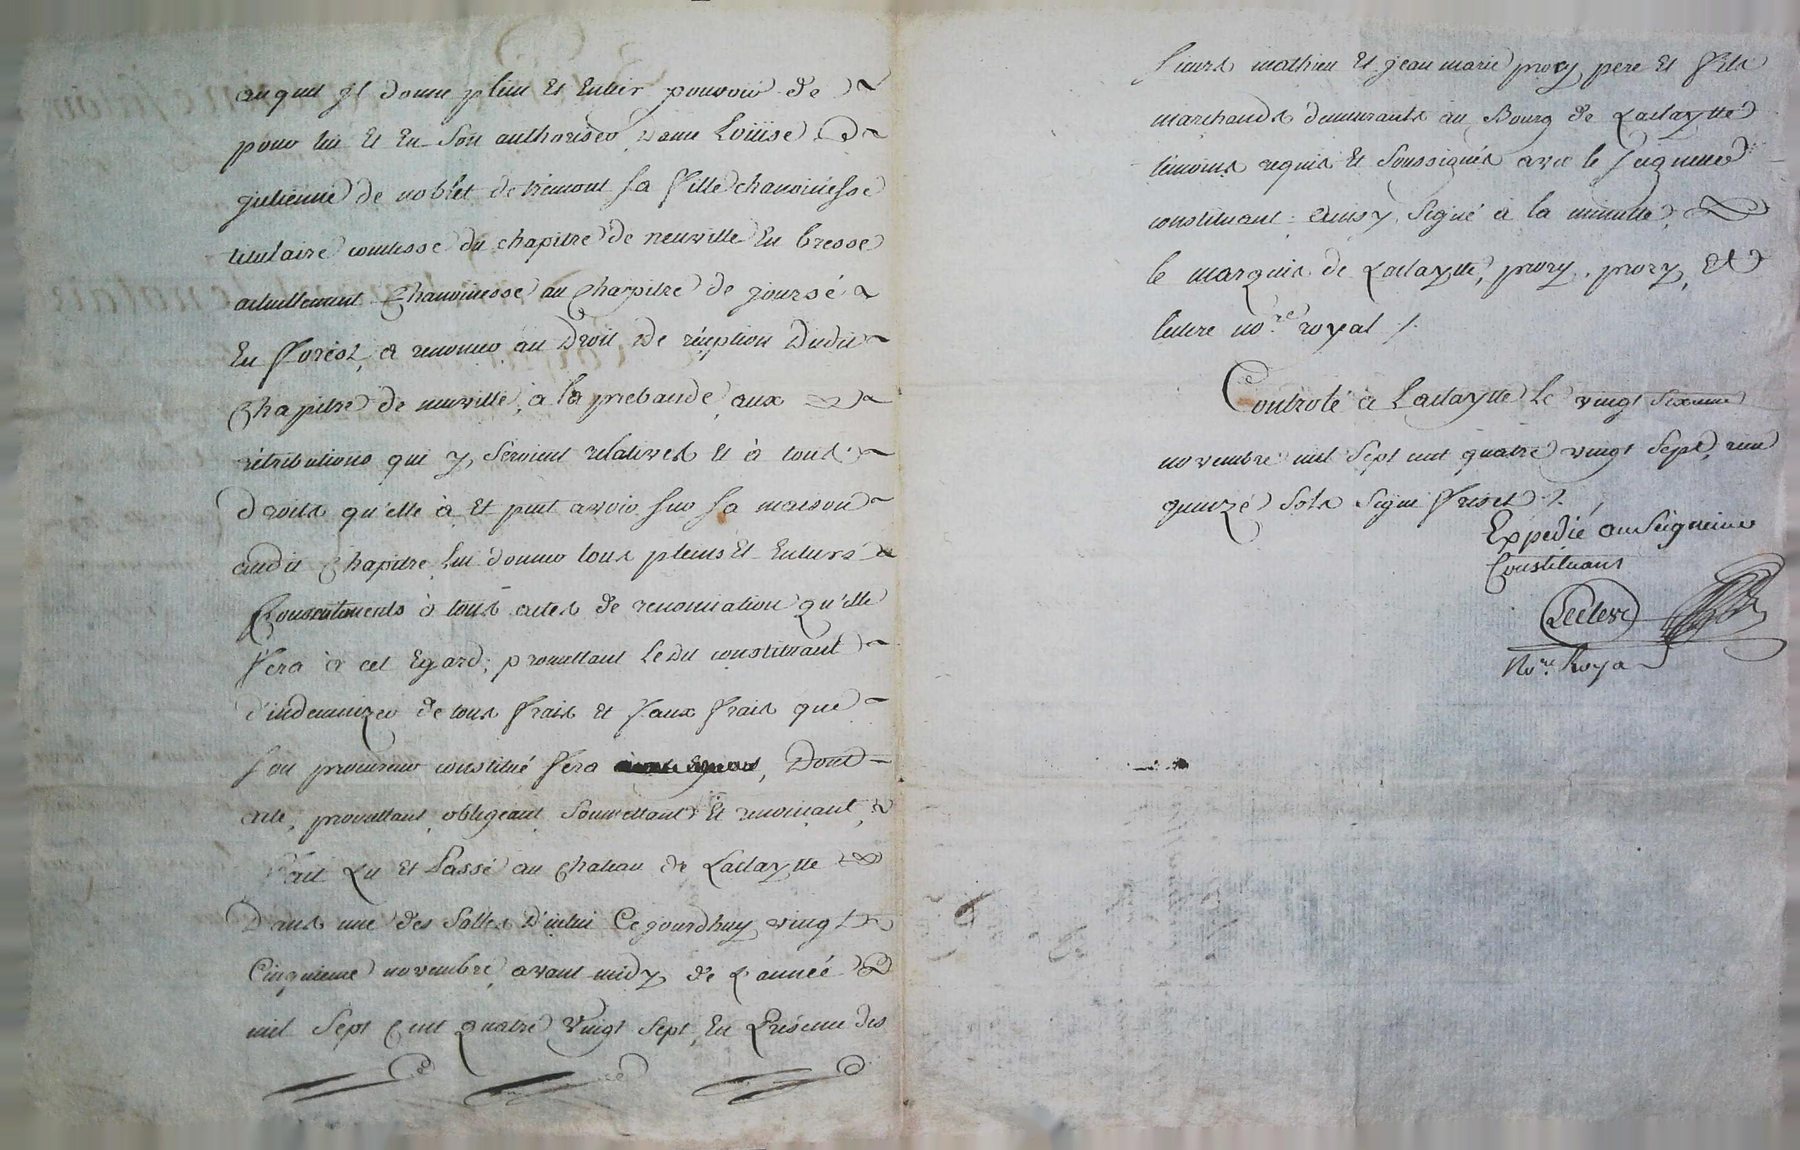 auquel Il donne plein Et Entier pouvoir de
pour lui Et En Son authoriser Dame Loüise
julienne de noblet de trémont Sa Fille chanoinesse
titulaire comtesse du chapitre de neuville En bresse
actuellement Chanoinesse au Chapitre de joursé
En Forest, a renoncer au Droit De réception Dudit
Chapitre de neuville, à la prebande, aux
rétributions qui y Seroient relatives Et à tous
Droits qu'elle à Et peut avoir Sur Sa maison
audit Chapitre, lui donner tous pleins Et Entiers
Consentements à tous actes de renonciation qu'elle
Fera à cet Egard; promettant Ledit constituant
d'indemnizer de tous Frais et Faux Frais que
Son procureur constitué Fera , Dont
acte, promettant, obligeant, Soumettant Et renonçant,
Fait Lu Et Passé au Chateau de Laclaytte
Dans une des Salles D'icelui Ce jourdhuy vingt
Cinquieme novembre avant midy de L'année
mil Sept Cent Quatre Vingt Sept, En Présence des
Sieurs mathieu Et jean marie prory pere Et Fils
marchands demeurants au Bourg de Laclaytte
témoins requis Et Soussignés avec le Seigneur
constituant. Ainsy Signé à la minutte,
le marquis de Laclaytte, prory, prory, Et
leclerc no.re royal /.
Controlé à Laclaytte Le vingt Sixieme
novembre mil Sept cent quatre vingt Sept, reçu
quinze Sols Signé
Expedié au Seigneur
Constituant
Leclerc
No.re Royal